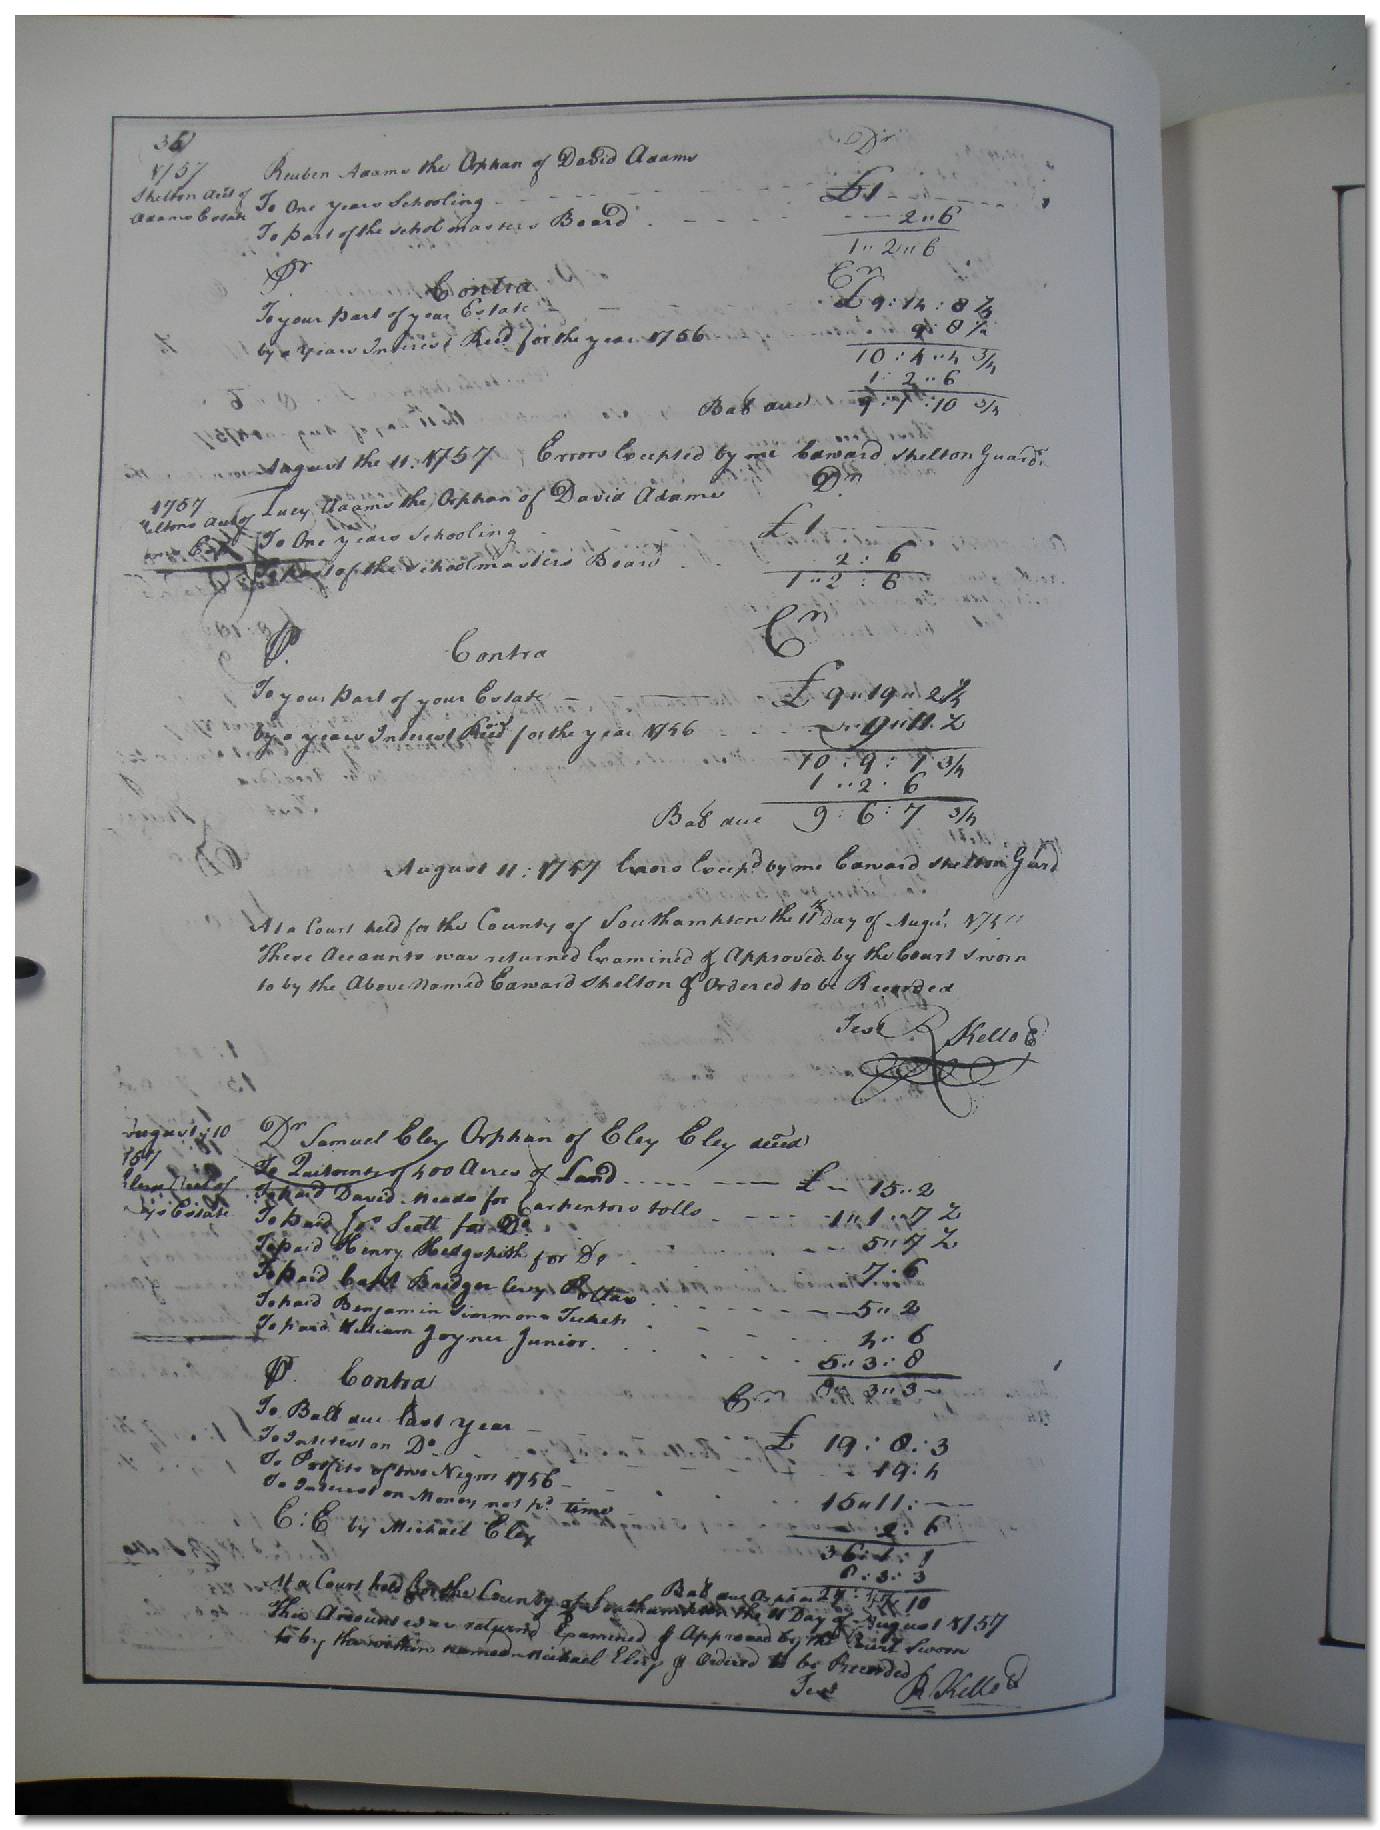 36
1757
Shelton Acct of
Adams Estate
Reuben Adams the Orphan of David Adams Dr
To One years Schooling £1
To part of the schoolmasters Board 2 " 6
1 " 2 " 6
Pr Contra Cr
To your part of your Estate £9 : 14 : 8 1/4
by a years Interest Recd for the year 1756 9 : 8 1/2
10 : 4 " 4 3/4
1 : 2 " 6
Ball due 9 : 1 : 10 3/4
August the 11 : 1757 Errors Excepted by me Edward Shelton Guardn
1757
eltons Acct of
Lucy Adams the Orphan of David Adams Dr
To One years Schooling £1
To part of the Schoolmasters Board 2 : 6
1 " 2 : 6
P. Contra Cr
To your part of your Estate £9 " 19 " 2 1/4
by a years Interest Recd for the year 1756 9 " 11 1/2
10 : 9 : 1 3/4
1 " 2 : 6
Ball due 9 : 6 : 7 3/4
August 11 : 1757 Errors Excepd by me Edward Shelton Guard
At a Court held for the County of Southampton the 11th Day of Augt
These Accounts was returned Examined & Approved by the Court Sworn
to by the Above named Edward Shelton & Ordered to be Recorded
Test R Kello C
August 10
157
Dr Samuel Eley Orphan of Eley Eley decd
To Quitrents of 400 Acres of Land £ 15 " 2
To paid David Meads for Carpenters tolls 1 " 1 " 7 1/2
To paid Jos Scott for Do 5 " 7 1/2
To paid Henry Hedgpith for Do 7 " 6
To paid Capt Bridger levy & tax 5 " 2
To paid Benjamin Simmons Tickets 4 " 6
To paid William Joyner Junior 5 " 3 " 8
8 " 3 " 3
P. Contra Cr
To Ball due last year £ 19 : 8 : 3
To Interest on Do 19 : 4
To Profits of two Negros 1756 15 " 11 :
To Interest on Money not pd time 2 : 6
E : E by Michael Eley 36 : 1 : 1
8 : 3 : 3
Ball due Orphan 27 : 17 10
At a Court held for the County of Southampton the 11 Day of August 1757
This Account was returned Examined & Approved by the Court Sworn
to by the within named Michael Eley & Ordered to be Recorded
Test R. Kello C